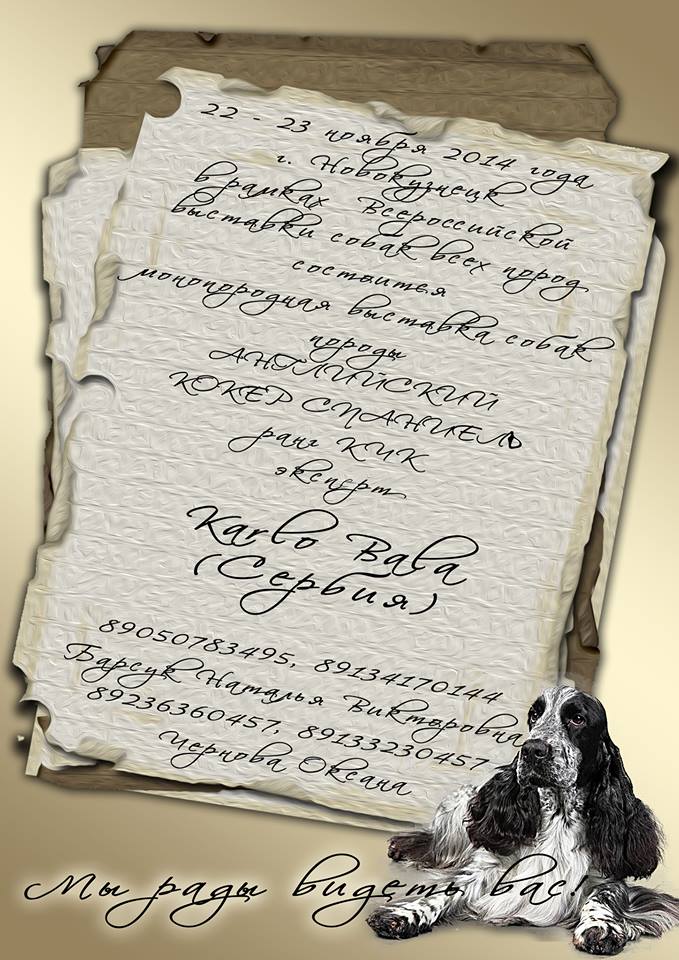 22 - 23 ноября 2014 года
г. Новокузнецк
в рамках Всероссийской
выставки собак всех пород
состоится
монопородная выставка собак
породы
АНГЛИЙСКИЙ
КОКЕР СПАНИЕЛЬ
ранг КЧК
эксперт
Karlo Bala
(Сербия)
89050783495, 89134170144
Барсук Наталья Викторовна
89236360457, 89133230457
Чернова Оксана
Мы рады видеть вас!